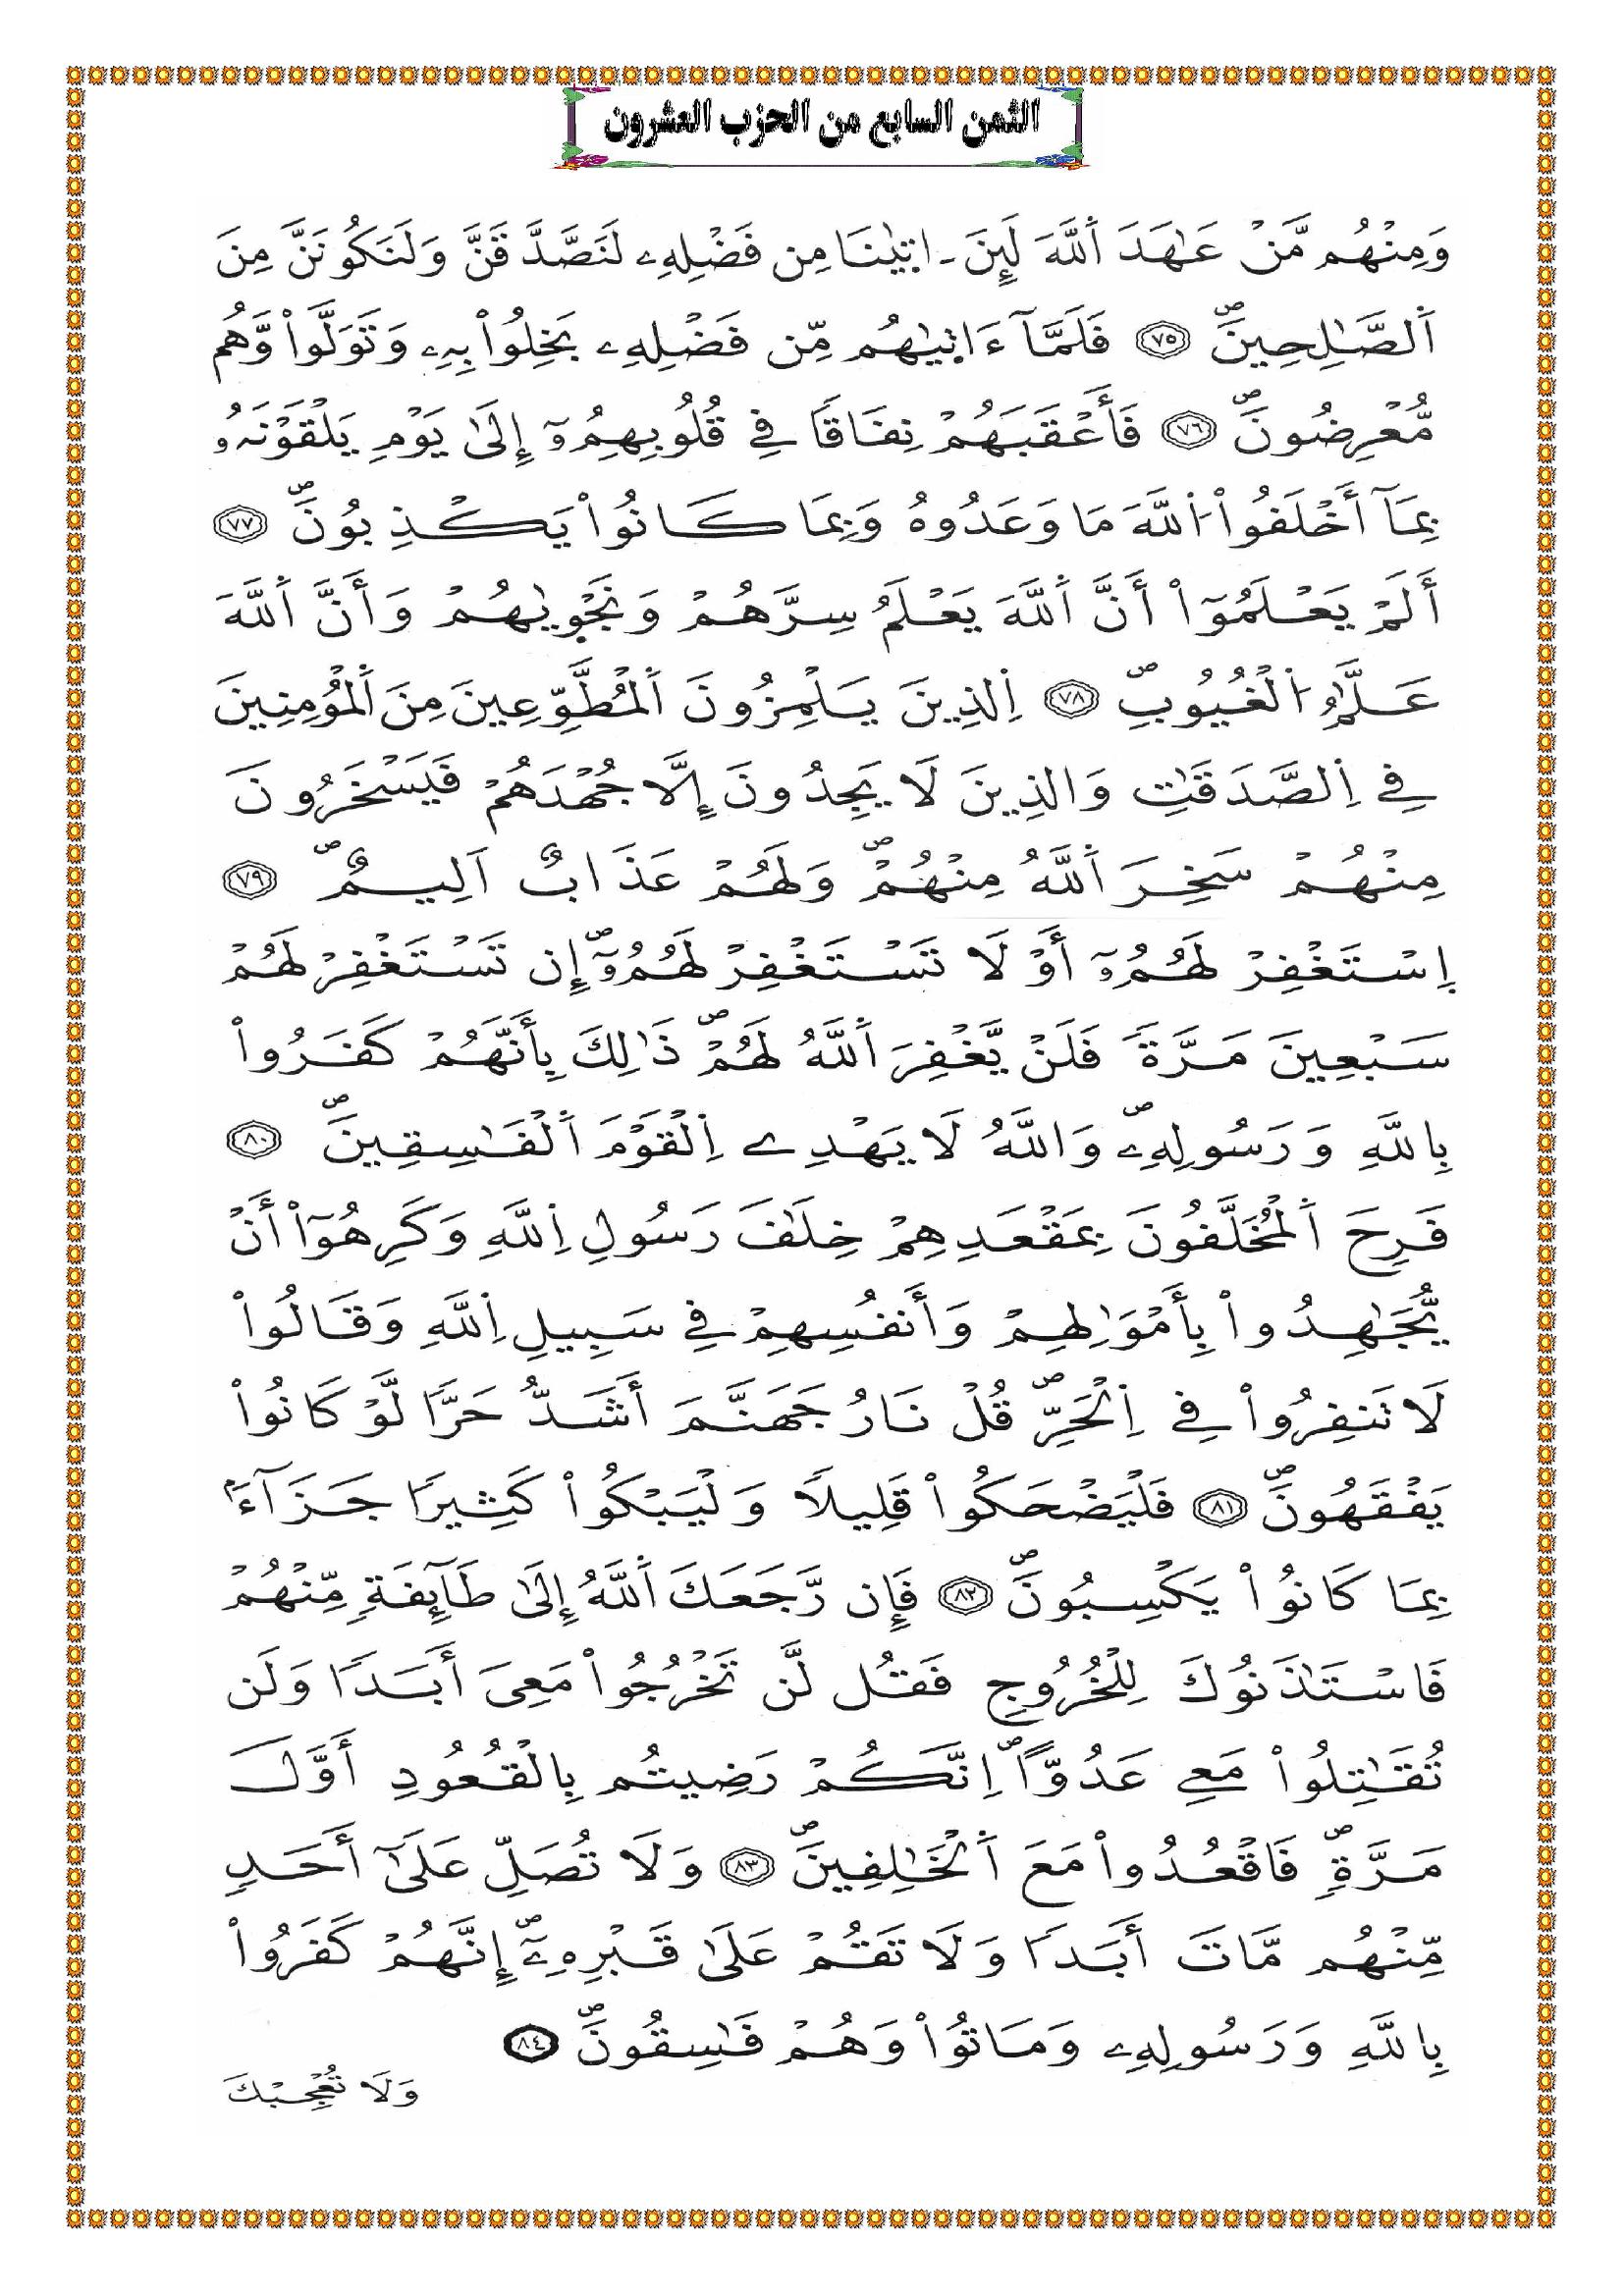 الثمن السابع من الحزب العشرون
وَمِنْهُم مَّنْ عَٰهَدَ اَ۬للَّهَ لَئِنَ اٰت۪يٰنَا مِن فَضْلِهِۦ لَنَصَّدَّقَنَّ وَلَنَكُونَنَّ مِنَ
اَ۬لصَّٰلِحِينَۖ ٧٥ فَلَمَّآ ءَات۪يٰهُم مِّن فَضْلِهِۦ بَخِلُواْ بِهِۦ وَتَوَلَّواْ وَّهُم
مُّعْرِضُونَۖ ٧٦ فَأَعْقَبَهُمْ نِفَاقاٗ فِے قُلُوبِهِمُۥٓ إِلَىٰ يَوْمِ يَلْقَوْنَهُۥ
بِمَآ أَخْلَفُواْ اُ۬للَّهَ مَا وَعَدُوهُ وَبِمَا كَانُواْ يَكْذِبُونَۖ ٧٧
أَلَمْ يَعْلَمُوٓاْ أَنَّ اَ۬للَّهَ يَعْلَمُ سِرَّهُمْ وَنَجْو۪يٰهُمْ وَأَنَّ اَ۬للَّهَ
عَلَّٰمُ اُ۬لْغُيُوبِۖ ٧٨ اِ۬لذِينَ يَلْمِزُونَ اَ۬لْمُطَّوِّعِينَ مِنَ اَ۬لْمُؤْمِنِينَ
فِے اِ۬لصَّدَقَٰتِ وَالذِينَ لَا يَجِدُونَ إِلَّا جُهْدَهُمْ فَيَسْخَرُونَ
مِنْهُمْ سَخِرَ اَ۬للَّهُ مِنْهُمْۖ وَلَهُمْ عَذَابٌ اَلِيمٌۖ ٧٩
اِ۪سْتَغْفِرْ لَهُمُۥٓ أَوْ لَا تَسْتَغْفِرْ لَهُمُۥٓۖ إِن تَسْتَغْفِرْ لَهُمْ
سَبْعِينَ مَرَّةٗ فَلَنْ يَّغْفِرَ اَ۬للَّهُ لَهُمْۖ ذَٰلِكَ بِأَنَّهُمْ كَفَرُواْ
بِاللَّهِ وَرَسُولِهِۦۖ وَاللَّهُ لَا يَهْدِے اِ۬لْقَوْمَ اَ۬لْفَٰسِقِينَۖ ٨٠
فَرِحَ اَ۬لْمُخَلَّفُونَ بِمَقْعَدِهِمْ خِلَٰفَ رَسُولِ اِ۬للَّهِ وَكَرِهُوٓاْ أَنْ
يُّجَٰهِدُواْ بِأَمْوَٰلِهِمْ وَأَنفُسِهِمْ فِے سَبِيلِ اِ۬للَّهِ وَقَالُواْ
لَا تَنفِرُواْ فِے اِ۬لْحَرِّۖ قُلْ نَارُ جَهَنَّمَ أَشَدُّ حَرّاٗ لَّوْ كَانُواْ
يَفْقَهُونَۖ ٨١ فَلْيَضْحَكُواْ قَلِيلاٗ وَلْيَبْكُواْ كَثِيراٗ جَزَآءَۢ
بِمَا كَانُواْ يَكْسِبُونَۖ ٨٢ فَإِن رَّجَعَكَ اَ۬للَّهُ إِلَىٰ طَآئِفَةٖ مِّنْهُمْ
فَاسْتَٰذَنُوكَ لِلْخُرُوجِ فَقُل لَّن تَخْرُجُواْ مَعِيَ أَبَداٗ وَلَن
تُقَٰتِلُواْ مَعِے عَدُوّاًۖ اِنَّكُمْ رَضِيتُم بِالْقُعُودِ أَوَّلَ
مَرَّةٖۖ فَاقْعُدُواْ مَعَ اَ۬لْخَٰلِفِينَۖ ٨٣ وَلَا تُصَلِّ عَلَىٰٓ أَحَدٖ
مِّنْهُم مَّاتَ أَبَداٗ وَلَا تَقُمْ عَلَىٰ قَبْرِهِۦٓۖ إِنَّهُمْ كَفَرُواْ
بِاللَّهِ وَرَسُولِهِۦ وَمَاتُواْ وَهُمْ فَٰسِقُونَۖ ٨٤
وَلَا تُعْجِبْكَ